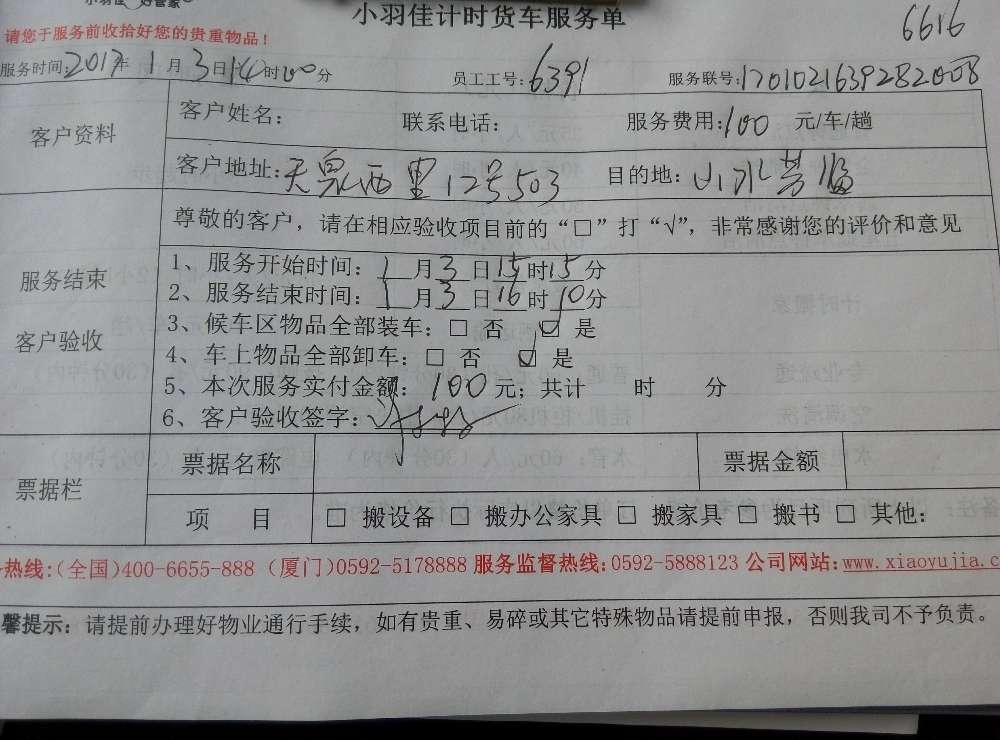 小羽佳 好管家
小羽佳计时货车服务单
6616
请您于服务前收拾好您的贵重物品!
服务时间:2017年1月3日14时00分 员工工号:6391 服务联号:1701021639282008
客户资料
客户姓名: 联系电话: 服务费用:100 元/车/趟
客户地址:天泉西里12号503 目的地:山水芳临
尊敬的客户，请在相应验收项目前的“□”打“√”，非常感谢您的评价和意见
服务结束
客户验收
1、服务开始时间：1月3日15时15分
2、服务结束时间：1月3日16时10分
3、候车区物品全部装车：□ 否 ☑ 是
4、车上物品全部卸车：□ 否 ☑ 是
5、本次服务实付金额：100元；共计 时 分
6、客户验收签字：
票据栏
票据名称 票据金额
项 目 □ 搬设备 □ 搬办公家具 □ 搬家具 □ 搬书 □ 其他:
热线:(全国)400-6655-888 (厦门)0592-5178888 服务监督热线:0592-5888123 公司网站:www.xiaoyujia.c
馨提示：请提前办理好物业通行手续，如有贵重、易碎或其它特殊物品请提前申报，否则我司不予负责。